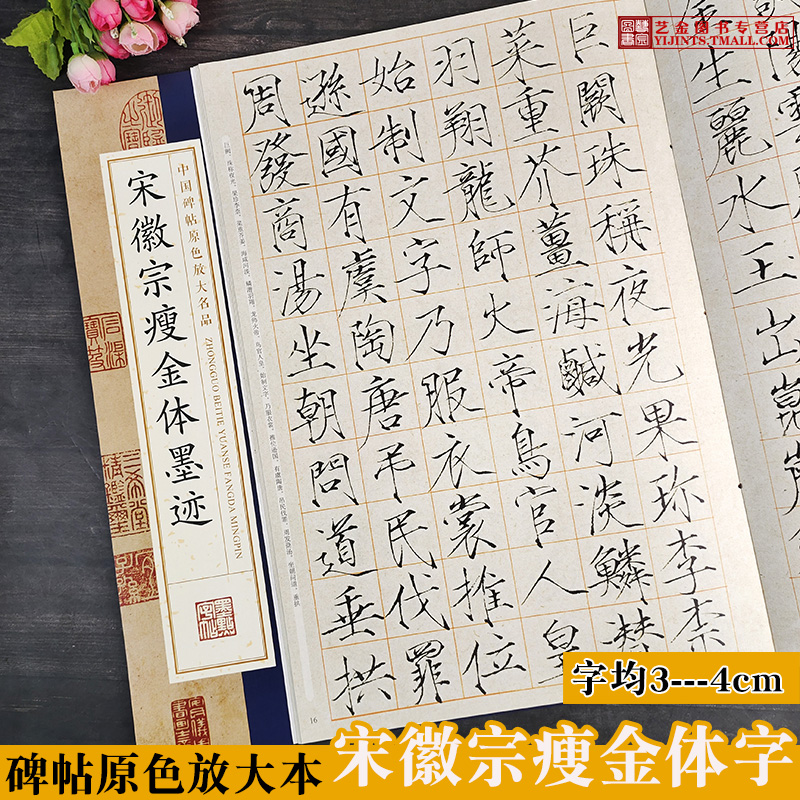 艺金图书专营店
YIJINTS.TMALL.COM
中国碑帖原色放大名品
ZHONGGUO BEITIE YUANSE FANGDA MINGPIN
宋徽宗瘦金体墨迹
墨點字帖
生麗水玉出崑
巨闕珠稱夜光果珍李柰
菜重芥薑海鹹河淡鱗潛
羽翔龍師火帝鳥官人皇
始制文字乃服衣裳推位
遜國有虞陶唐弔民伐罪
周發商湯坐朝問道垂拱
16
字均3---4cm
碑帖原色放大本
宋徽宗瘦金体字